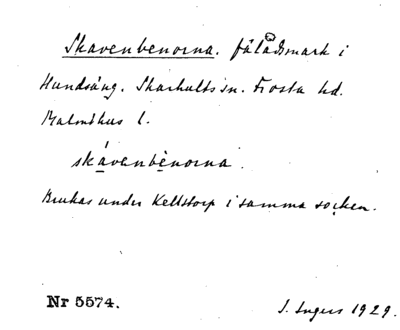 Skavenbenorna. fäladsmark i
Hundsäng. Skarhults sn. Frosta hd.
Malmöhus l.
skávenbènorna.
Brukas under Kellstorp i samma socken.
Nr 5574.
J. Ingers 1929.